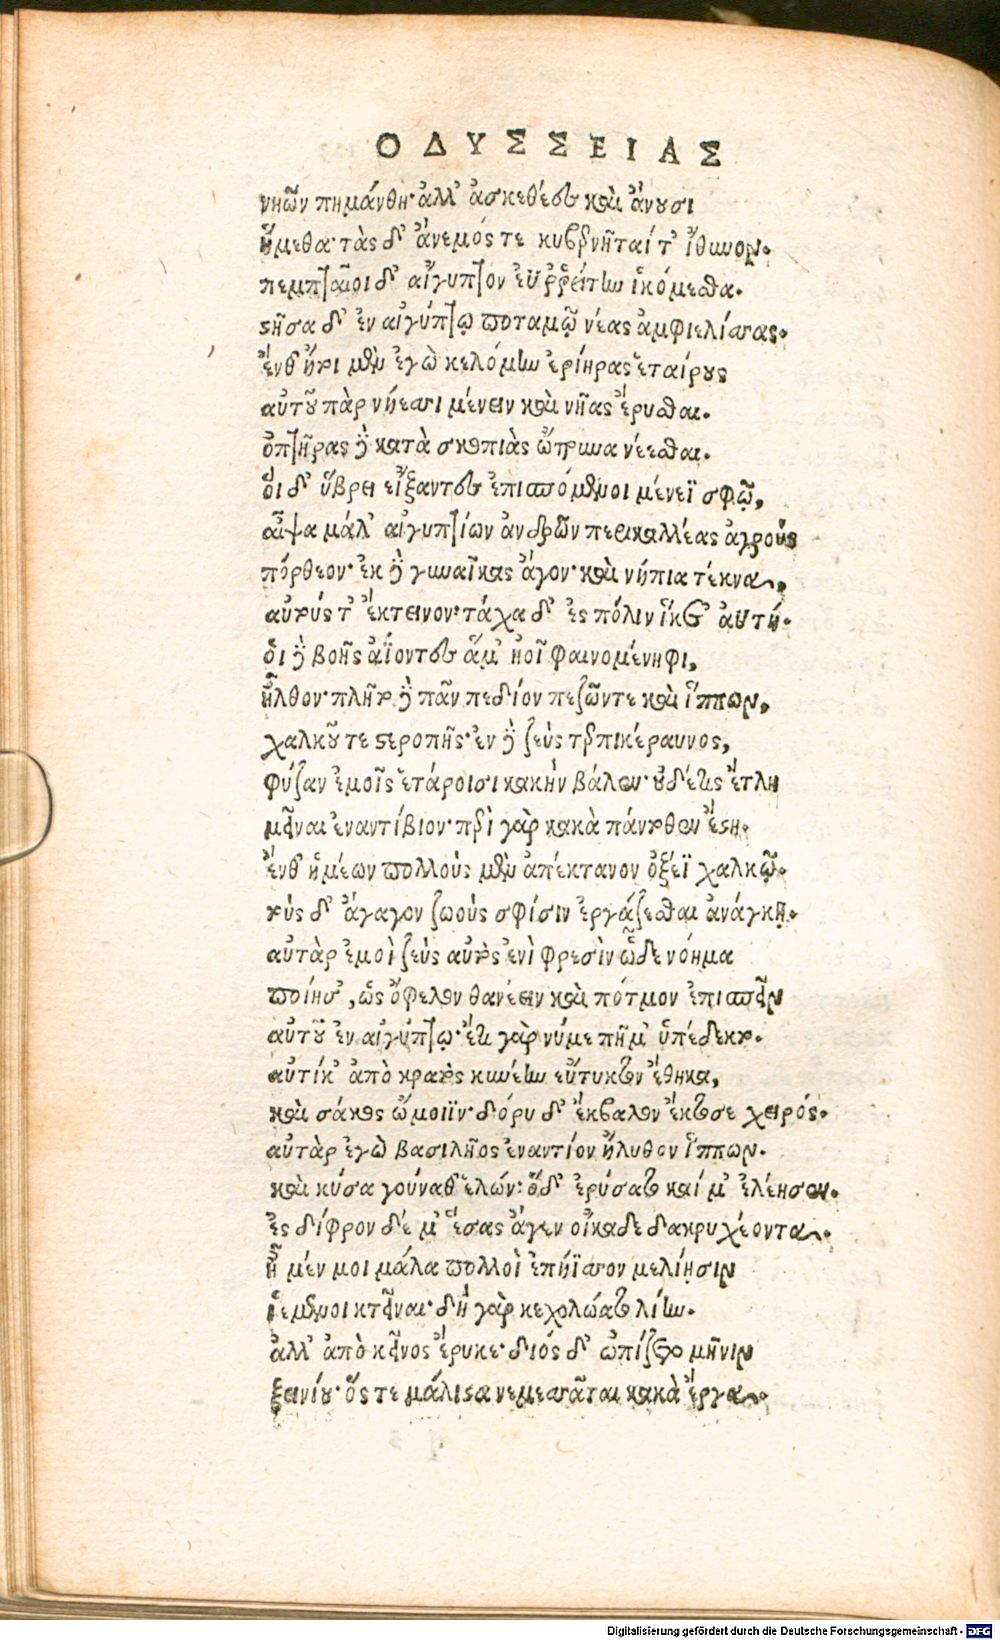 ΟΔΥΣΣΕΙΑΣ
νηῶν πημάνθη· ἀλλ' ἀσκεθέες καὶ ἄνουσοι
ἥμεθα· τὰς δ' ἄνεμός τε κυβερνῆταί τ' ἴθυνον.
πεμπταῖοι δ' αἴγυπτον ἐϋρρείτην ἱκόμεσθα.
στῆσα δ' ἐν αἰγύπτῳ ποταμῷ νέας ἀμφιελίσσας.
ἔνθ' ἤτοι μὲν ἐγὼ κελόμην ἐρίηρας ἑταίρους
αὐτοῦ πὰρ νήεσσι μένειν καὶ νῆας ἔρυσθαι.
ὀπτῆρας δὲ κατὰ σκοπιὰς ὤτρυνα νέεσθαι.
οἱ δ' ὕβρει εἴξαντες ἐπισπόμενοι μένεϊ σφῷ,
αἶψα μάλ' αἰγυπτίων ἀνδρῶν περικαλλέας ἀγροὺς
πόρθεον· ἐκ δὲ γυναῖκας ἄγον· καὶ νήπια τέκνα,
αὐτούς τ' ἔκτεινον· τάχα δ' ἐς πόλιν ἵκετ' ἀϋτή.
οἱ δὲ βοῆς ἀΐοντες ἅμ' ἠοῖ φαινομένηφι,
ἦλθον· πλῆτο δὲ πᾶν πεδίον πεζῶντε καὶ ἵππων,
χαλκοῦ τε στεροπῆς· ἐν δὲ ζεὺς τερπικέραυνος,
φύζαν ἐμοῖς ἑτάροισι κακὴν βάλεν· οὐδέτις ἔτλη
μεῖναι ἐναντίβιον· περὶ γὰρ κακὰ πάντοθεν ἔστη.
ἔνθ' ἡμέων πολλοὺς μὲν ἀπέκτανον ὀξέϊ χαλκῷ.
τοὺς δ' ἄγαγον ζωοὺς σφίσιν ἐργάζεσθαι ἀνάγκῃ.
αὐτὰρ ἐμοὶ ζεὺς αὐτὸς ἐνὶ φρεσὶν ὧδε νόημα
ποίησ', ὡς ὄφελον θανέειν καὶ πότμον ἐπισπεῖν
αὐτοῦ ἐν αἰγύπτῳ· ἔτι γὰρ νύμε πῆμ' ὑπέδεκτο.
αὐτίκ' ἀπὸ κρατὸς κυνέην εὔτυκτον ἔθηκα,
καὶ σάκος ὤμοιϊν· δόρυ δ' ἔκβαλον ἔκτοσε χειρός.
αὐτὰρ ἐγὼ βασιλῆος ἐναντίον ἤλυθον ἵππων.
καὶ κύσα γούναθ' ἑλών· ὅδ' ἐρύσατο καί μ' ἐλέησεν.
ἐς δίφρον δέ μ' ἕσας ἄγεν οἴκαδε δακρυχέοντα.
ἦ μέν μοι μάλα πολλοὶ ἐπήϊσσον μελίῃσιν
ἱέμενοι κτεῖναι· δὴ γὰρ κεχολώατο λίην.
ἀλλ' ἀπὸ κεῖνος ἔρυκε· διός δ' ὠπίζετο μῆνιν
ξεινίου· ὅς τε μάλιστα νεμεσσᾶται κακὰ ἔργα.
Digitalisierung gefördert durch die Deutsche Forschungsgemeinschaft - DFG